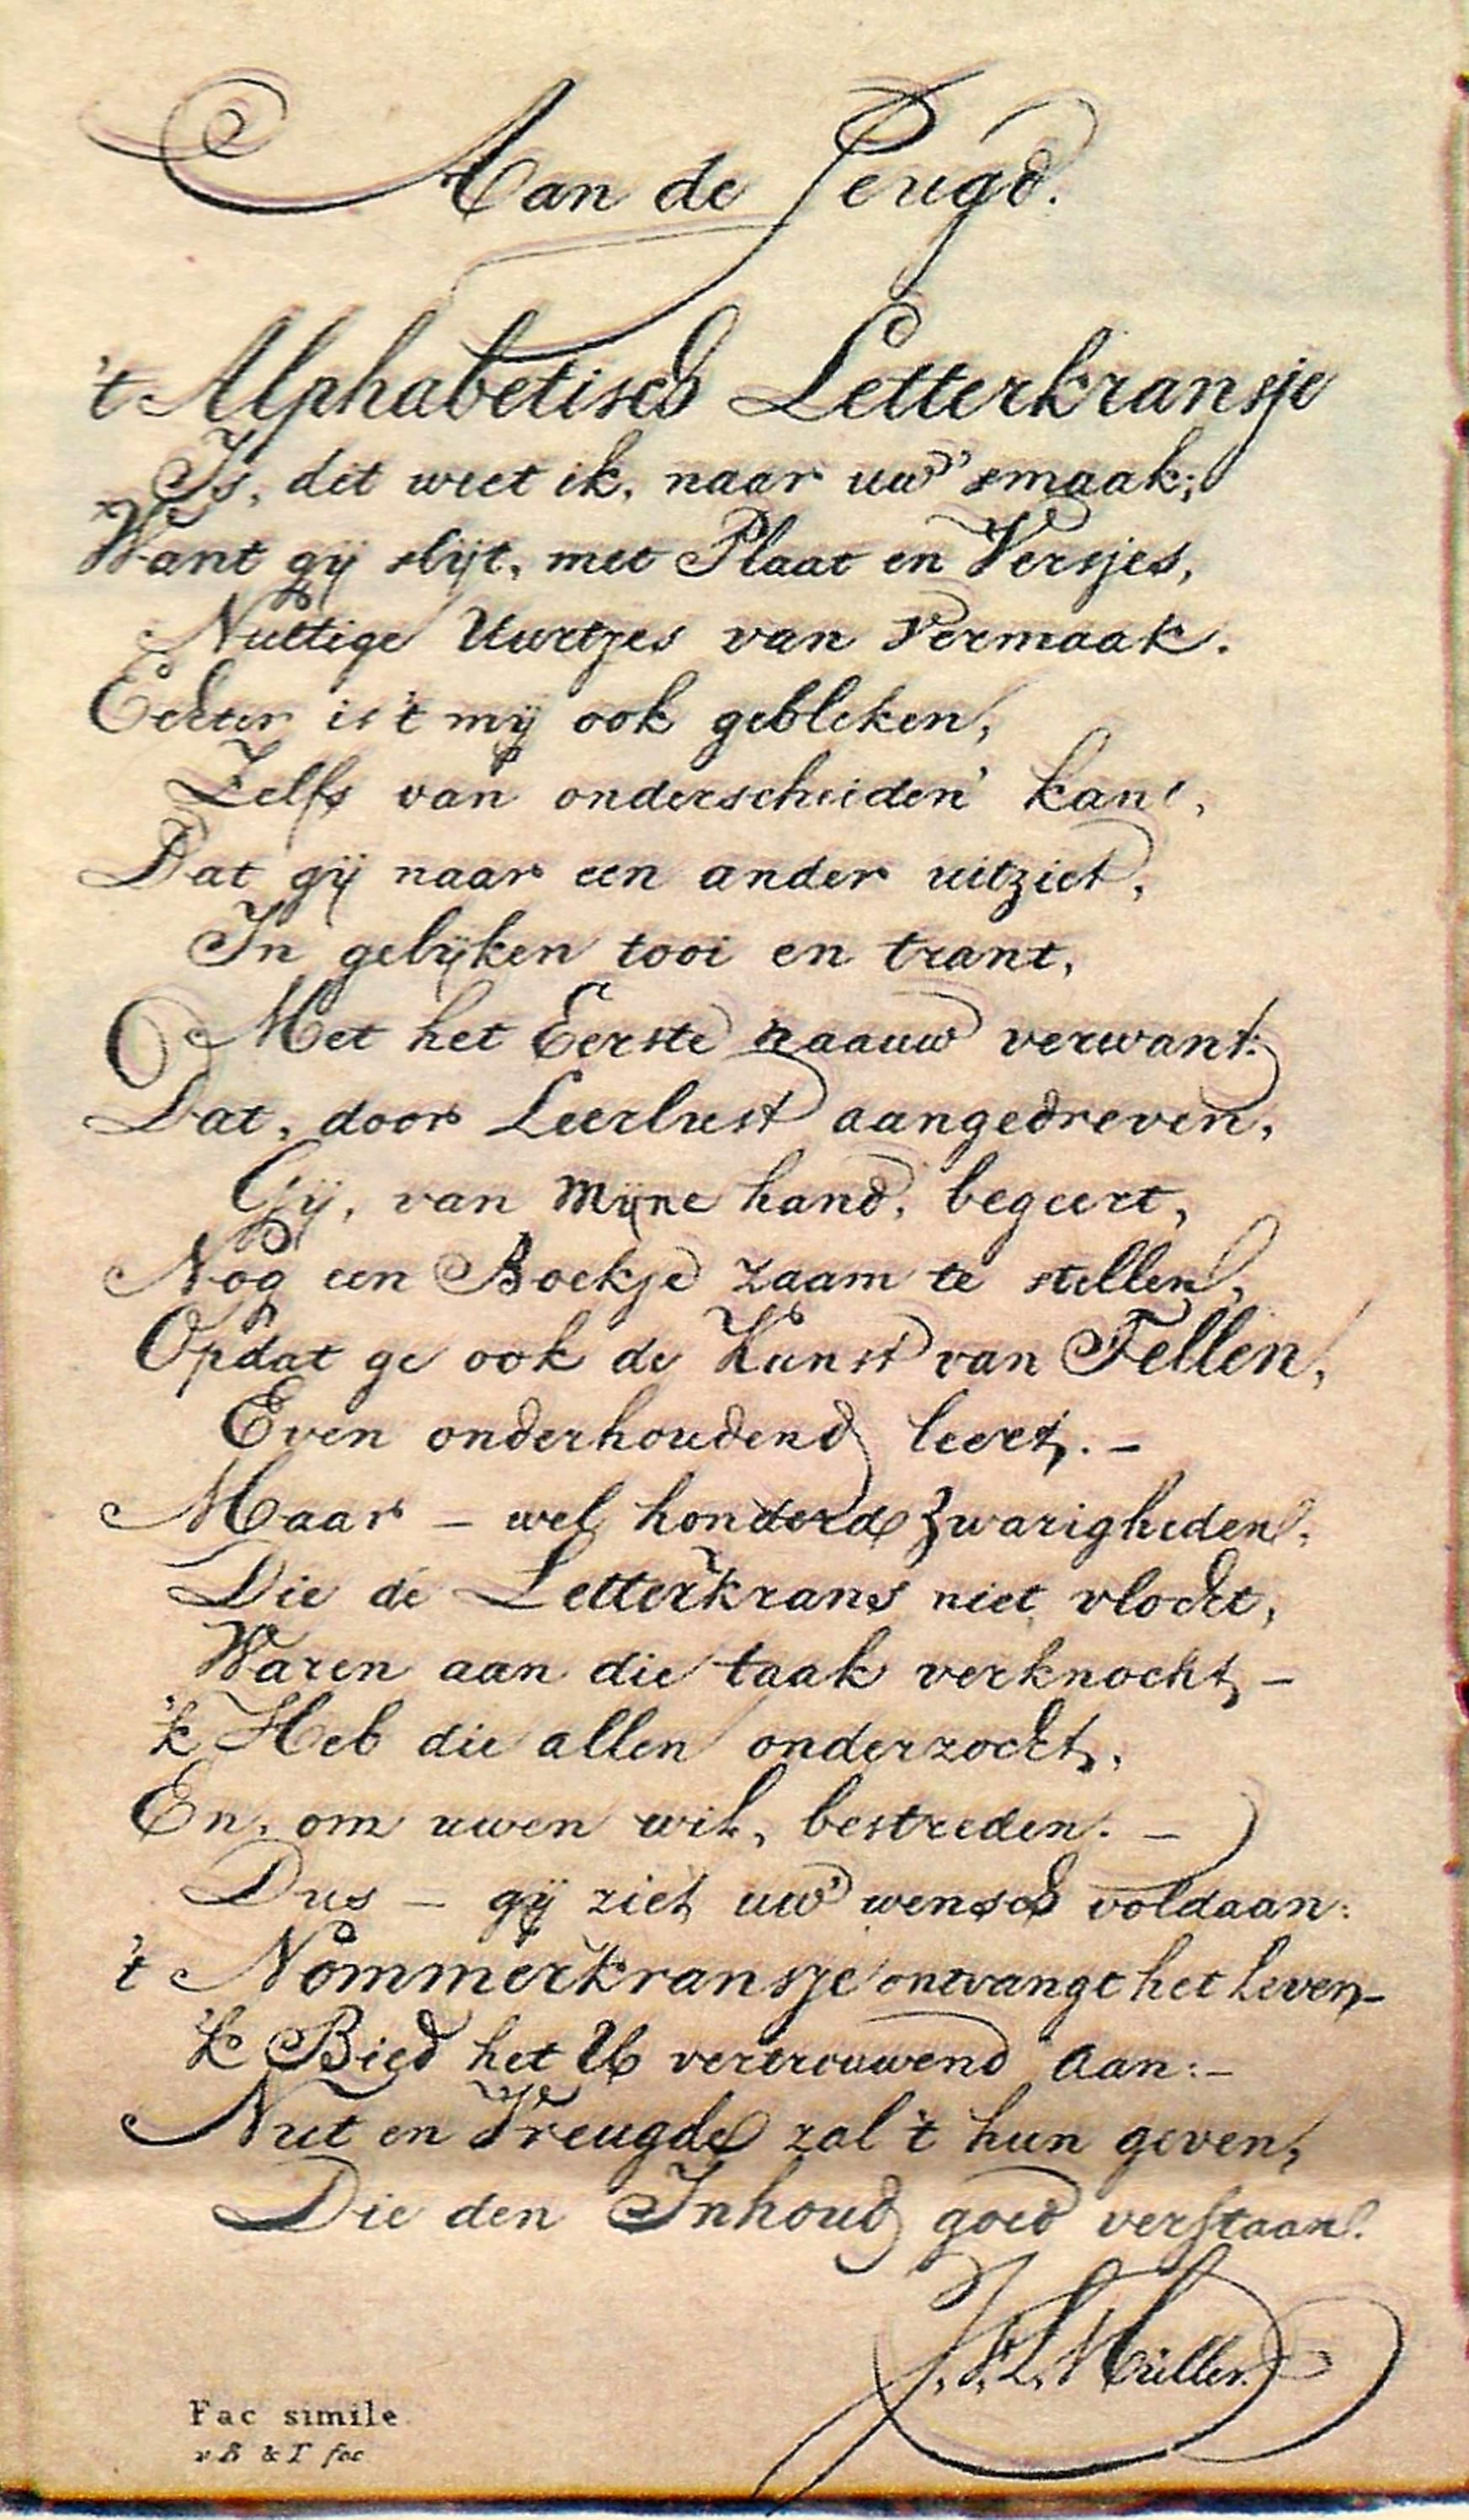 Aan de Jeugd.
't Alphabetisch Letterkransje
Is, dit weet ik, naar uw' smaak;
Want gij slijt, met Plaat en Versjes,
Nuttige Uurtjes van Vermaak.
Echter is 't mij ook gebleken,
Zelfs van onderscheiden' kant,
Dat gij naar een ander uitziet,
In gelijken tooi en trant,
Met het Eerste naauw verwant:
Dat, door Leerlust aangedreven,
Gij, van Mijne hand, begeert,
Nog een Boekje zaam te stellen,
Opdat ge ook de Kunst van Tellen,
Even onderhoudend leert. –
Maar – wel honderd Zwarigheden,
Die de Letterkrans niet vlocht,
Waren aan die taak verknocht, –
'k Heb die allen onderzocht,
En, om uwen wil, bestreden. –
Dus – gij ziet uw' wensch voldaan:
't Nommerkransje ontvangt het Leven, –
'k Bied het U vertrouwend aan: –
Nut en Vreugde zal 't hun geven,
Die den Inhoud goed verstaan.
J. F. L. Müller.
Fac simile
v B & T fec